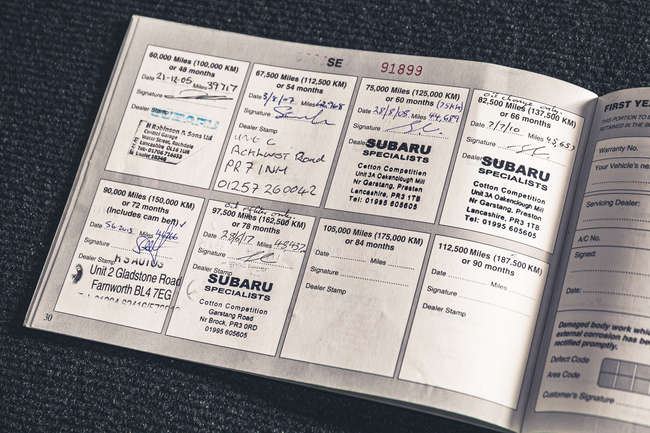 SE
91899
60,000 Miles (100,000 KM)
or 48 months
Date 21-12-05 Miles 39717
Signature
Dealer Stamp
SUBARU
M Robinson & Sons Ltd
Central Garage
67,500 Miles (112,500 KM)
or 54 months
Date Miles
Signature
Dealer Stamp
Unit C
Road
PR7 1NH
01257 260042
75,000 Miles (125,000 KM)
or 60 months (75km)
Date 28/8/08 Miles 44,689
Signature
Dealer Stamp
SUBARU
SPECIALISTS
Cotton Competition
Unit 3A Oakenclough Mill
Nr Garstang, Preston
Lancashire, PR3 1TB
Tel: 01995 605605
oil change only
82,500 Miles (137,500 KM)
or 66 months
Date 7/7/10 Miles 45,657
Signature
Dealer Stamp
SUBARU
SPECIALISTS
Cotton Competition
Unit 3A Oakenclough Mill
Nr Garstang, Preston
Lancashire, PR3 1TB
Tel: 01995 605605
90,000 Miles (150,000 KM)
or 72 months
(Includes cam belt)
Date Miles
Signature
Dealer Stamp
H S AUTOS
Unit 2 Gladstone Road
Farnworth BL4 7EG
only
97,500 Miles (162,500 KM)
or 78 months
Date Miles
Signature
Dealer Stamp
SUBARU
SPECIALISTS
Cotton Competition
Garstang Road
Nr Brock, PR3 0RD
01995 605605
105,000 Miles (175,000 KM)
or 84 months
Date Miles
Signature
Dealer Stamp
112,500 Miles (187,500 KM)
or 90 months
Date Miles
Signature
Dealer Stamp
30
FIRST YE
THIS PORTION TO
RETAINED IN THE
Warranty No.
Your Vehicle's nex
Servicing Dealer:
A/C No.
Signed
Date
Damaged body work which
external corrosion has been
rectified promptly.
Defect Code
Area Code
Customer's Signature